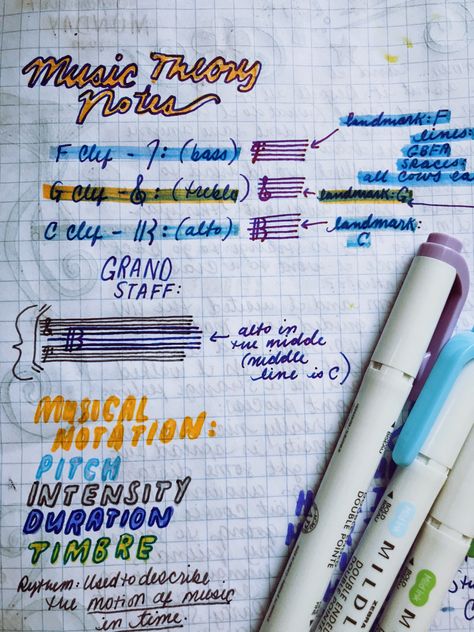 Music Theory
Notes
F clef - 𝄢: (bass)
landmark: F
lines:
GBFA
spaces:
all cows ea
G clef - 𝄞: (treble)
landmark: G
C clef - 𝄡: (alto)
landmark:
C
GRAND
STAFF:
alto in
the middle
(middle
line is C)
MUSICAL
NOTATION:
PITCH
INTENSITY
DURATION
TIMBRE
Rythem: Used to describe
the motion of music
in time.
ZEBRA
DOUBLE ENDED
DOUBLE POINTE
MILDL
ZEBRA
MIL
BOLD